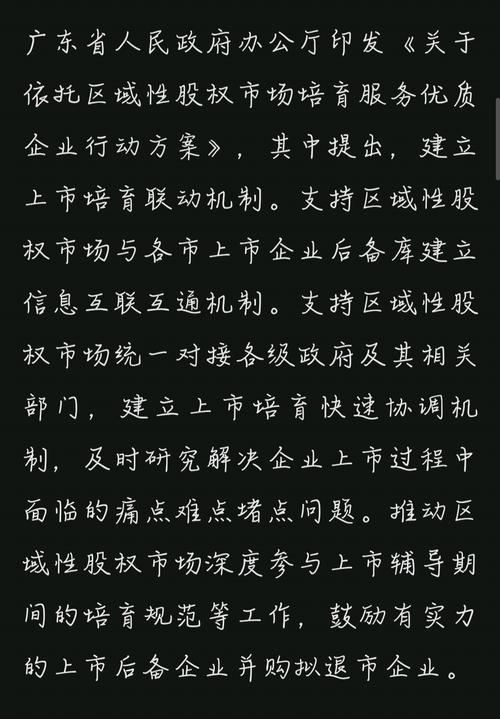 广东省人民政府办公厅印发《关于
依托区域性股权市场培育服务优质
企业行动方案》，其中提出，建立
上市培育联动机制。支持区域性股
权市场与各市上市企业后备库建立
信息互联互通机制。支持区域性股
权市场统一对接各级政府及其相关
部门，建立上市培育快速协调机
制，及时研究解决企业上市过程中
面临的痛点难点堵点问题。推动区
域性股权市场深度参与上市辅导期
间的培育规范等工作，鼓励有实力
的上市后备企业并购拟退市企业。